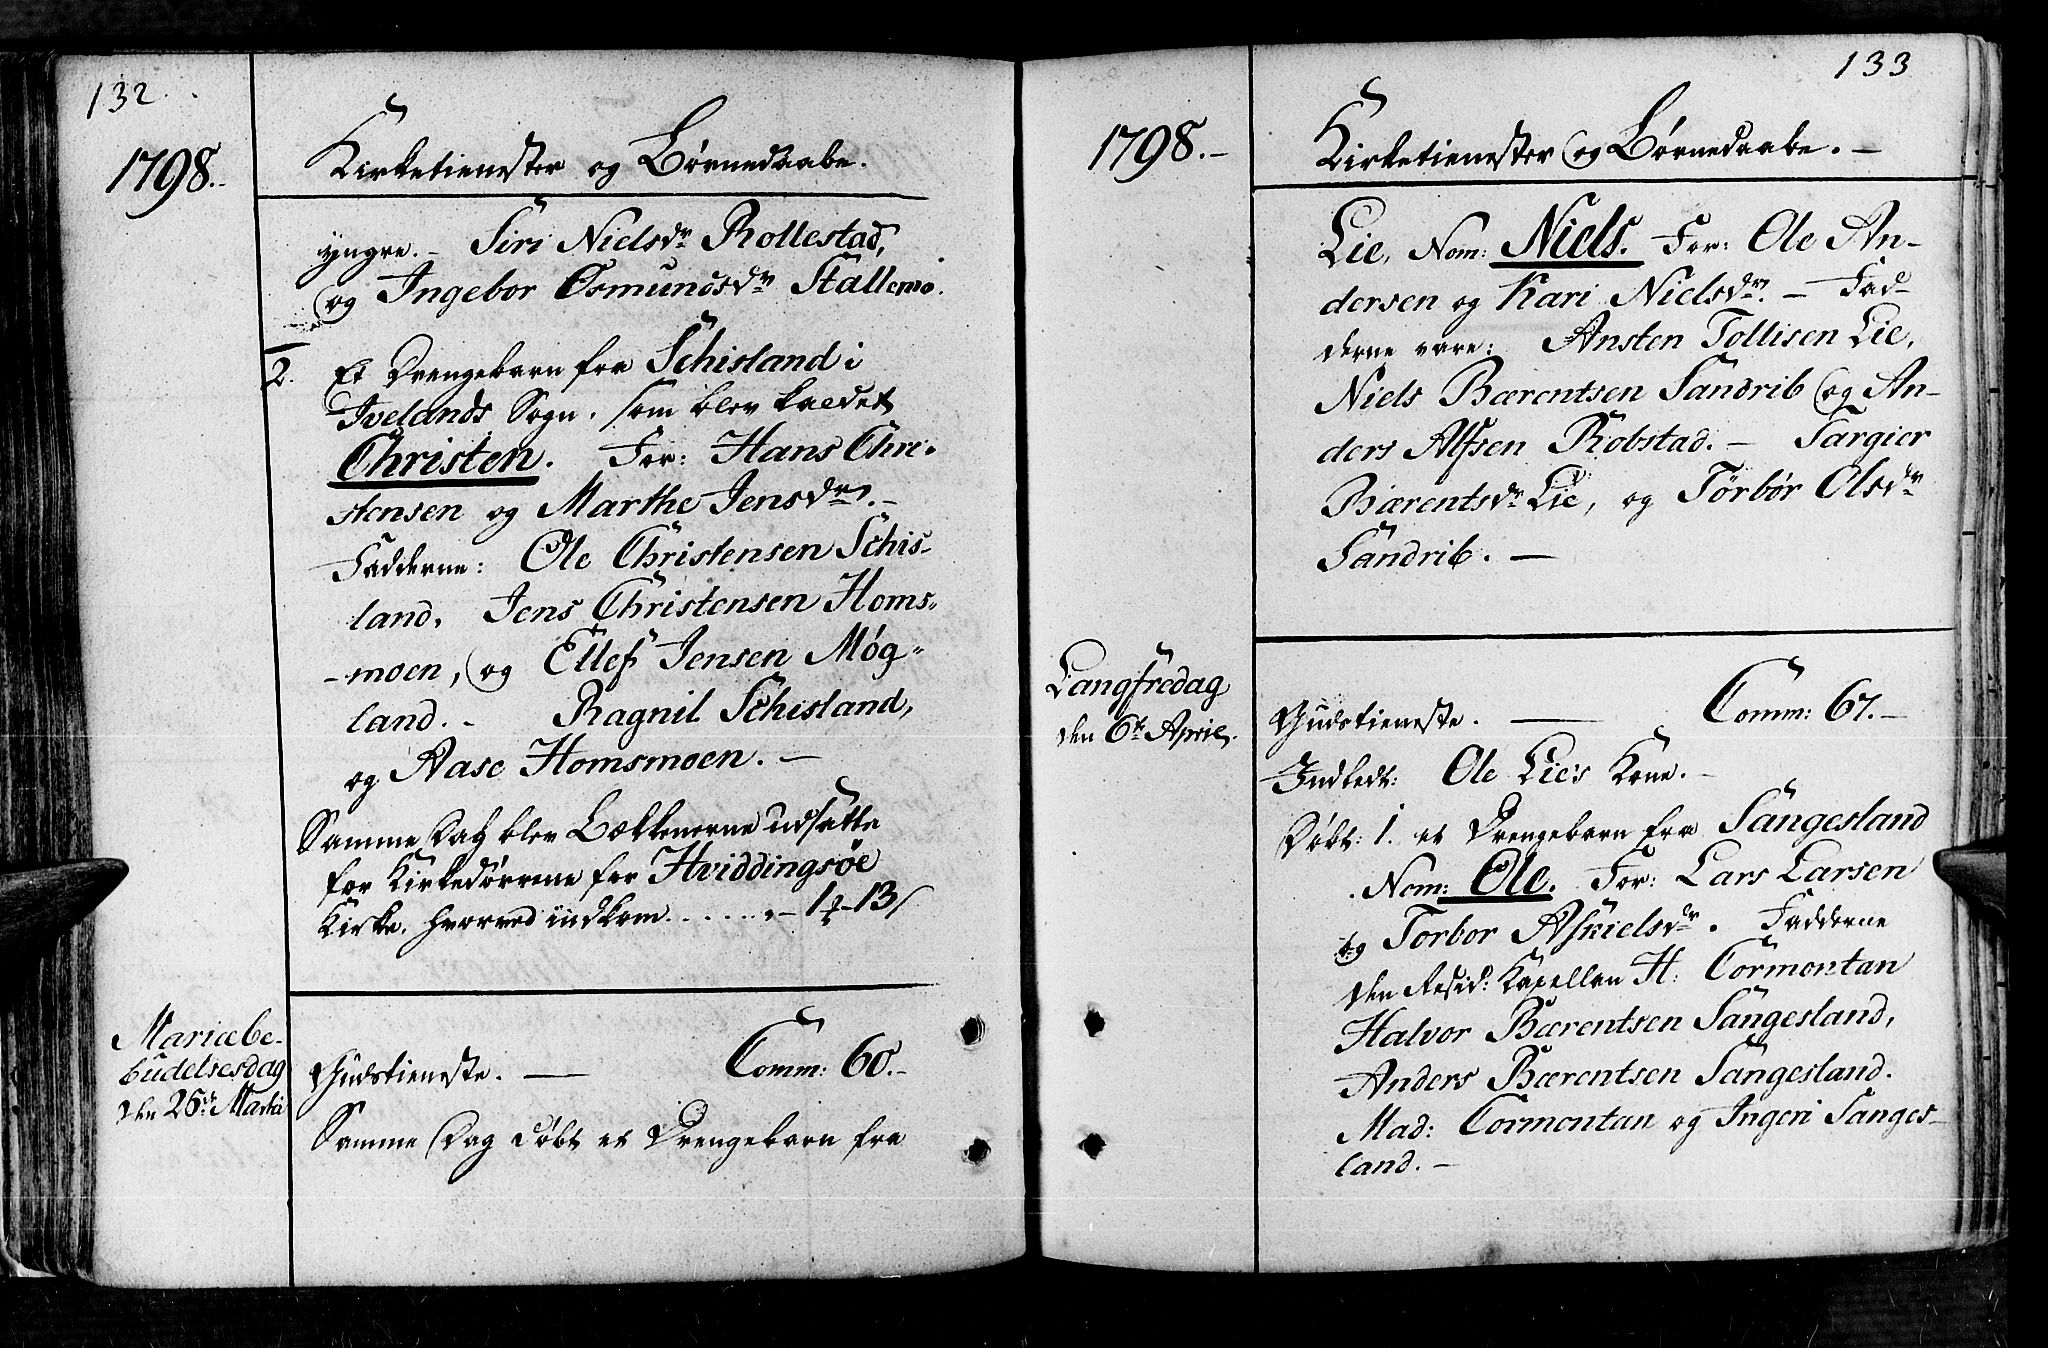 132
1798.-
Kirketienester og Børnedaabe.
yngre. - Siri Nielsdr Rollestad,
og Ingebor Osmundsdr Stallemo.
2. Et Drengebarn fra Schisland i
Ivelands Sogn, som blev kaldet
Christen. For: Hans Chri-
stensen og Marthe Jensdr. -
Fadderne: Ole Christensen Schis-
land, Jens Christensen Homs-
-moen, og Ellef Jensen Møg-
land. - Ragnil Schisland,
og Aase Homsmoen. -
Samme Dag blev Bækkenerne udsatte
for Kirkedørrene for Hviddingsøe
Kirke, hvorved indkom . . . . . . - 1 2 - 13 /
Mariæbe-
budelsesdag
den 26de Martii
Gudstieneste. — Comm: 60. -
Samme Dag døbt et Drengebarn fra
133
1798. -
Kirketienester og Børnedaabe. -
Lie, Nom: Niels. For: Ole An-
dersen og Kari Nielsdr. - Fad-
derne vare: Ansten Tollisen Lie,
Niels Bærentsen Sandrib og An-
ders Alfsen Robstad. - Targier
Bærentsdr Lie, og Tørbør Olsdr
Sandrib. —
Langfredag
den 6te April.
Gudstieneste. — Comm: 67. -
Indledt: Ole Lie's Kone. -
Døbt: 1. et Drengebarn fra Sangesland
Nom: Ole. For: Lars Larsen
og Torbor Aснielsdr. Fadderne
den Resid: Kapellan H: Cormontan
Halvor Bærentsen Sangesland,
Anders Bærentsen Sangesland.
Mad: Cormontan og Ingeri Sanges-
land. -